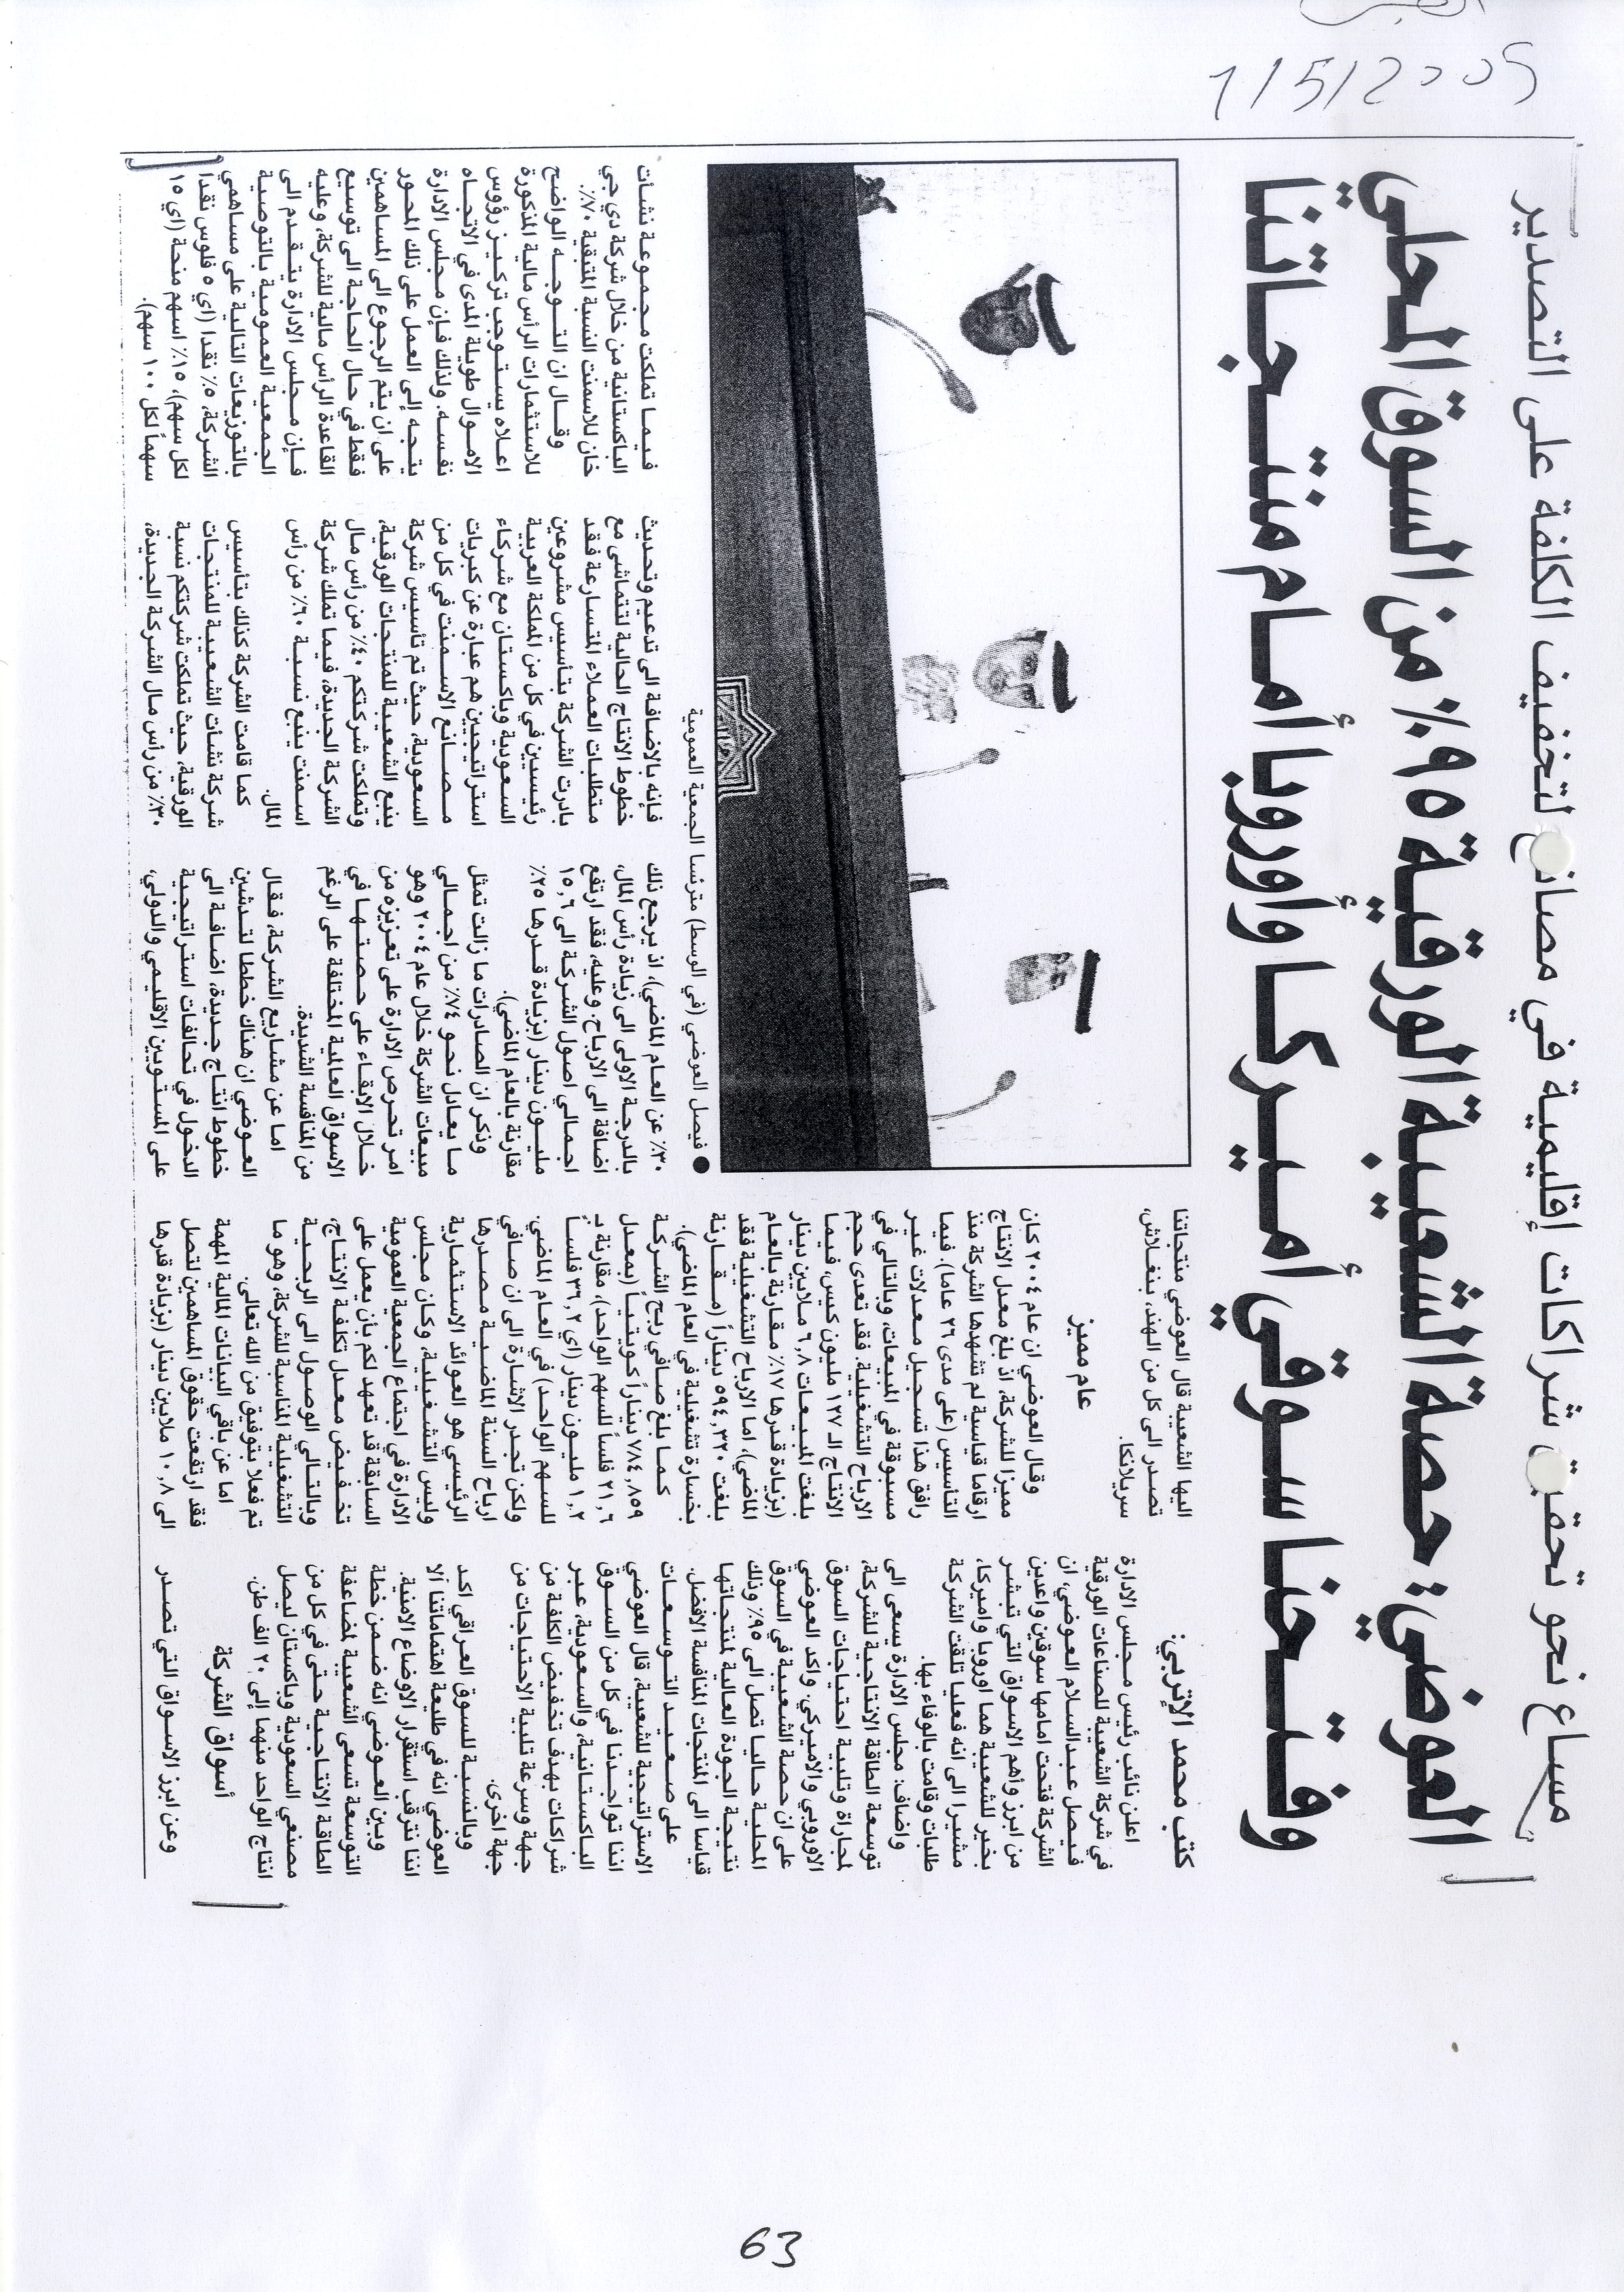 1/5/2005
مساع نحو تحقيق شراكات إقليمية في مصانع لتخفيف الكلفة على التصدير
العوضي: حصة الشعيبة الورقية ٩٥٪ من السوق المحلي
وفتحنا سوقي أميركا وأوروبا أمام منتجاتنا
كتب محمد الإتربي:
اعلن نائب رئيس مجلس الادارة
في شركة الشعيبة للصناعات الورقية
فيصل عبدالسلام العوضي، ان
الشركة فتحت امامها سوقين واعدين
من ابرز وأهم الاسواق التي تبشر
بخير للشعيبة هما اوروبا واميركا،
مشيرا الى انه فعليا تلقت الشركة
طلبات وقامت بالوفاء بها.
واضاف: مجلس الادارة يسعى الى
توسعة الطاقة الانتاجية للشركة،
لمجاراة وتلبية احتياجات السوق
الاوروبي والاميركي. واكد العوضي
على ان حصة الشعيبة في السوق
المحلية حاليا تصل الى ٩٥٪ وذلك
نتيجة الجودة العالية لمنتجاتها
قياسا الى المنتجات المنافسة الافضل.
على صعيد التوسعات
الاستراتيجية للشعيبة، قال العوضي
اننا تواجدنا في كل من السوق
الباكستانية، والسعودية، عبر
شراكات بهدف تخفيض الكلفة من
جهة وسرعة تلبية الاحتياجات من
جهة اخرى.
وبالنسبة للسوق العراقي اكد
العوضي انه في طليعة اهتماماتنا الا
اننا نترقب استقرار الاوضاع الامنية.
وبين العوضي انه ضمن خطة
التوسعة تسعى الشعيبة لمضاعفة
الطاقة الانتاجية حتى في كل من
مصنعي السعودية وباكستان ليصل
انتاج الواحد منهما إلى ٢٠ الف طن.
أسواق الشركة
وعن ابرز الاسواق التي تصدر
اليها الشعيبة قال العوضي منتجاتنا
تصدر الى كل من الهند، بنغلاش،
سريلانكا.
عام مميز
وقال العوضي ان عام ٢٠٠٤ كان
مميزا للشركة، اذ بلغ معدل الانتاج
ارقاما قياسية لم تشهدها الشركة منذ
التأسيس (على مدى ٢٦ عاما). فيما
رافق هذا تسجيل معدلات غير
مسبوقة في المبيعات، وبالتالي في
الارباح التشغيلية. فقد تعدى حجم
الانتاج الـ ١٢٧ مليون كيس، فيما
بلغت المبيعات ٦,٨ ملايين دينار
(بزيادة قدرها ١٧٪ مقارنة بالعام
الماضي)، اما الارباح التشغيلية فقد
بلغت ٥٩٤,٣٢٠ ديناراً (مقارنة
بخسارة تشغيلية في العام الماضي).
كما بلغ صافي ربح الشركة
٧٨٤,٨٥٩ ديناراً كويتياً (بمعدل
٢١,٦ فلساً للسهم الواحد)، مقارنة بـ
١,٢ مليون دينار (اي ٣٦,٢ فلساً
للسهم الواحد) في العام الماضي.
ولكن تجدر الاشارة الى ان صافي
ارباح السنة الماضية مصدرها
الرئيسي هو العوائد الاستثمارية
وليس التشغيلية، وكان مجلس
الادارة في اجتماع الجمعية العمومية
السابقة قد تعهد لكم بأن يعمل على
تخفيض معدل تكلفة الانتاج،
وبالتالي الوصول الى الربحية
التشغيلية المناسبة للشركة، وهو ما
تم فعلا بتوفيق من الله تعالى.
اما عن باقي البيانات المالية المهمة
فقد ارتفعت حقوق المساهمين لتصل
الى ١٠,٨ ملايين دينار (بزيادة قدرها
● فيصل العوضي (في الوسط) مترئسا الجمعية العمومية
٣٠٪ عن العام الماضي)، اذ يرجع ذلك
بالدرجة الاولى الى زيادة رأس المال،
اضافة الى الارباح. وعليه، فقد ارتفع
اجمالي اصول الشركة الى ١٥,٦
مليون دينار (بزيادة قدرها ٢٥٪
مقارنة بالعام الماضي).
وذكر ان الصادرات ما زالت تمثل
ما يعادل نحو ٧٤٪ من اجمالي
مبيعات الشركة خلال عام ٢٠٠٤ وهو
امر تحرص الادارة على تعزيزه من
خلال الابقاء على حصتها في
الاسواق العالمية المختلفة على الرغم
من المنافسة الشديدة.
اما عن مشاريع الشركة، فقال
العوضي ان هناك خططا لتدشين
خطوط انتاج جديدة، اضافة الى
الدخول في تحالفات استراتيجية
على المستويين الاقليمي والدولي،
فإنه بالاضافة الى تدعيم وتحديث
خطوط الانتاج الحالية لتتماشى مع
متطلبات العملاء المتسارعة فقد
بادرت الشركة بتأسيس مشروعين
رئيسيين في كل من المملكة العربية
السعودية وباكستان مع شركاء
استراتيجيين هم عبارة عن كبريات
مصانع الاسمنت في كل من
السعودية، حيث تم تأسيس شركة
ينبع الشعيبة للمنتجات الورقية،
وتملكت شركتكم ٤٠٪ من رأس مال
الشركة الجديدة، فيما تملك شركة
اسمنت ينبع نسبة ٦٠٪ من رأس
المال.
كما قامت الشركة كذلك بتأسيس
شركة نشأت الشعيبة للمنتجات
الورقية، حيث تملكت شركتكم نسبة
٣٠٪ من رأس مال الشركة الجديدة،
فيما تملكت مجموعة نشأت
الباكستانية من خلال شركة دي جي
خان للاسمنت النسبة المتبقية ٧٠٪.
وقال ان التوجه الواضح
للاستثمارات الرأس مالية المذكورة
اعلاه يستوجب تركيز رؤوس
الاموال طويلة المدى في الاتجاه
نفسه. ولذلك فإن مجلس الادارة
يتجه إلى العمل على ذلك المحور
على ان يتم الرجوع الى المساهمين
فقط في حال الحاجة الى توسيع
القاعدة الرأس مالية للشركة، وعليه
فإن مجلس الادارة يتقدم الى
الجمعية العمومية بالتوصية
بالتوزيعات التالية على مساهمي
الشركة، ٥٪ نقدا (اي ٥ فلوس نقدا
لكل سهم)، ١٥٪ اسهم منحة (اي ١٥
سهماً لكل ١٠٠ سهم).
63